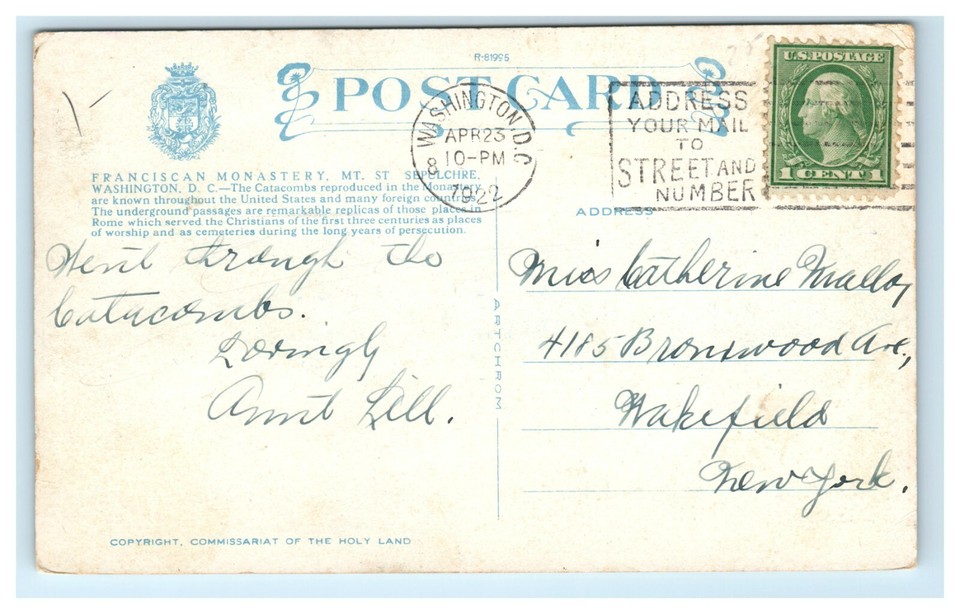 R-81995
POST CARD
WASHINGTON, D.C.
APR 23
8 10-PM
1922
ADDRESS
YOUR MAIL
TO
STREET AND
NUMBER
U.S. POSTAGE
1 CENT 1
FRANCISCAN MONASTERY, MT. ST SEPULCHRE,
WASHINGTON, D. C.—The Catacombs reproduced in the Monastery
are known throughout the United States and many foreign countries.
The underground passages are remarkable replicas of those places in
Rome which served the Christians of the first three centuries as places
of worship and as cemeteries during the long years of persecution.
ADDRESS
Went through the
Catacombs.
Lovingly
Aunt Lill.
ARTCHROM
Miss Catherine Malloy
4185 Bronxwood Ave.,
Wakefield
New York.
COPYRIGHT, COMMISSARIAT OF THE HOLY LAND